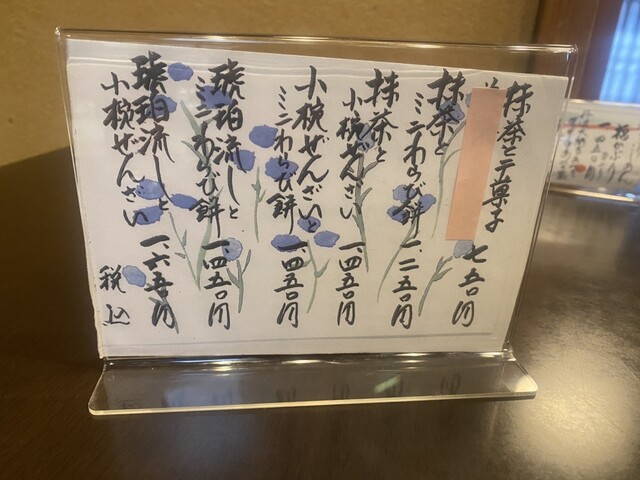 抹茶と干菓子 七五〇円
抹茶と
ミニわらび餅 一、二五〇円
抹茶と
小椀ぜんざい 一、四五〇円
小椀ぜんざいと
ミニわらび餅 一、四五〇円
琥珀流しと
ミニわらび餅 一、四五〇円
琥珀流しと
小椀ぜんざい 一、六五〇円
税込